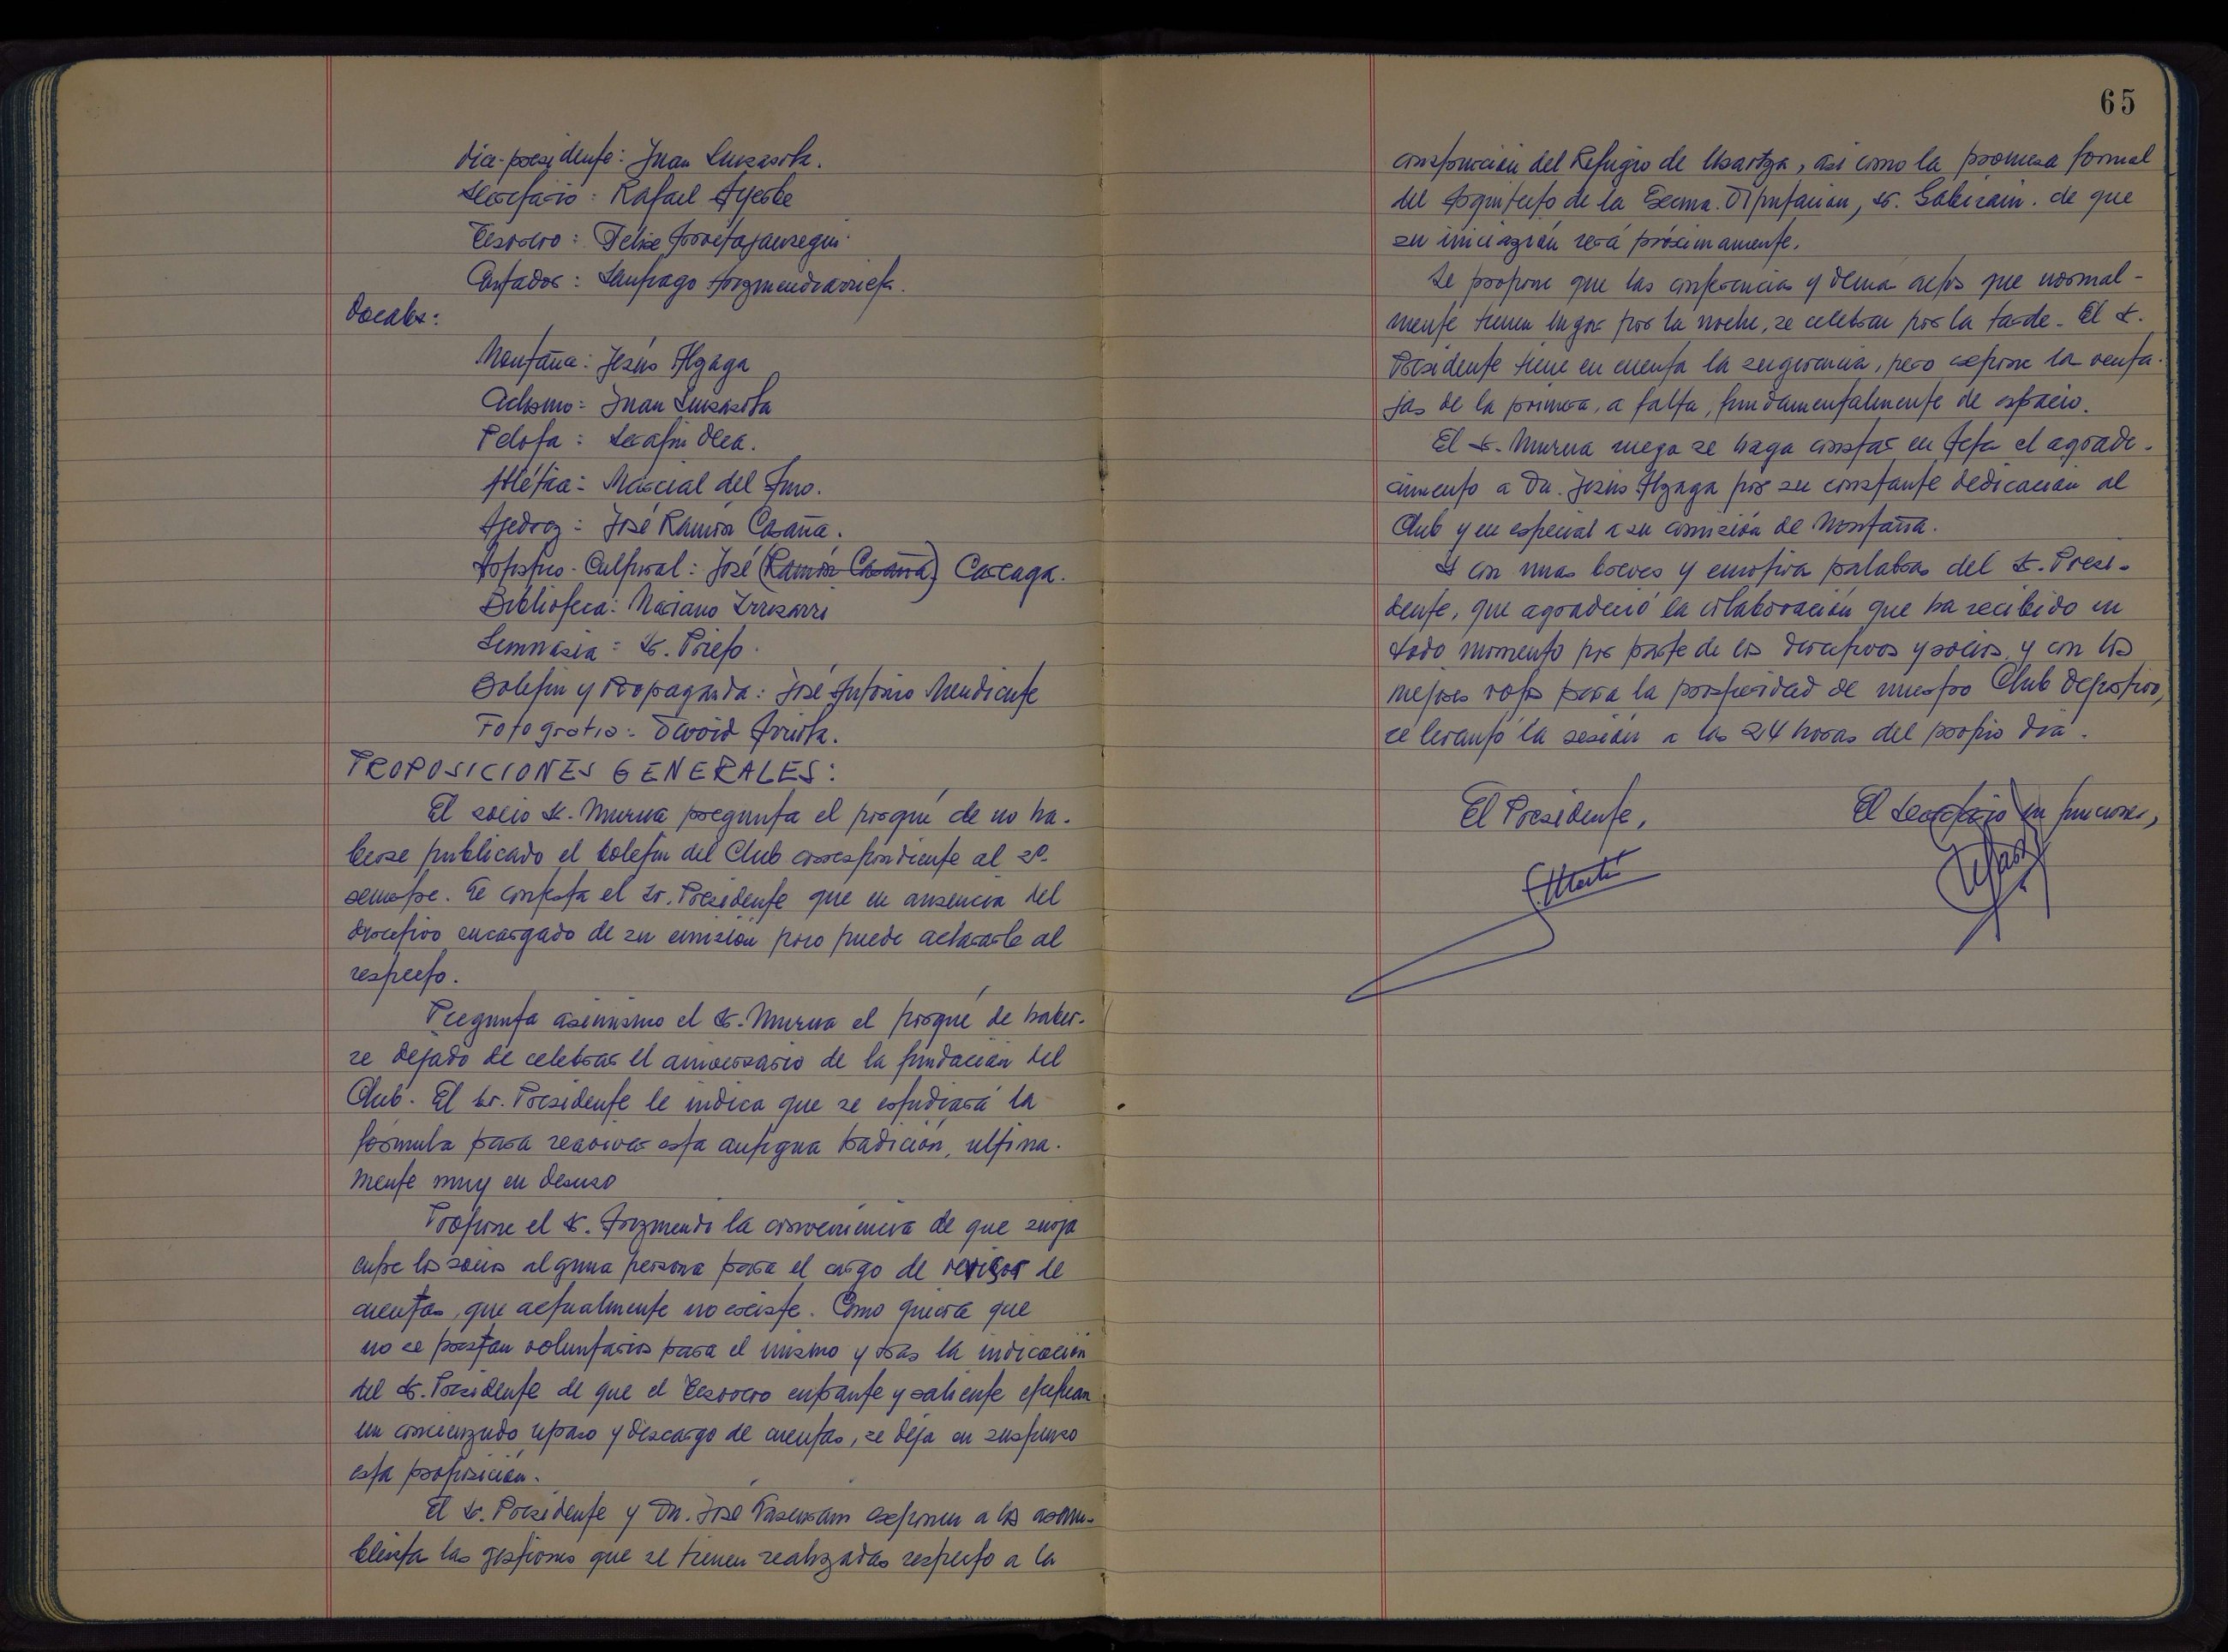 Vice-presidente: Juan Luzasorta.
Secretario: Rafael Ayerbe
Tesorero: Felix Arrietajauregui.
Contador: Santiago Arizmendiarrieta.
Vocales:
Montaña: Jesús Alzaga
Ciclismo: Juan Luzasorta
Pelota: Serafin Olea.
Atlética: Marcial del Amo.
Ajedrez: José Ramón Casaña.
Artistico-Cultural: José (Ramón Casaña) Careaga.
Biblioteca: Mariano Irrizarri
Gimnasia: Sr. Prieto.
Boletin y Propaganda: José Antonio Mendicute
Fotografia: David Arrieta.
PROPOSICIONES GENERALES:
El socio Sr. Murua pregunta el porqué de no ha-
berse publicado el boletin del Club correspondiente al 2º
semestre. Le contesta el Sr. Presidente que en ausencia del
directivo encargado de su emisión poco puede aclararle al
respecto.
Pregunta asimismo el Sr. Murua el porqué de haber-
se dejado de celebrar el aniversario de la fundación del
Club. El Sr. Presidente le indica que se estudiará la
fórmula para reavivar esta antigua tradición, ultima-
mente muy en desuso
Propone el Sr. Arizmendi la conveniencia de que surja
entre los socios alguna persona para el cargo de revisor de
cuentas, que actualmente no existe. Como quiera que
no se prestan voluntarios para el mismo y tras la indicación
del Sr. Presidente de que el Tesorero entrante y saliente efectuan
un concienzudo repaso y descargo de cuentas, se deja en suspenso
esta proposición.
El Sr. Presidente y Dn. José exponen a los asam-
bleista las gestiones que se tienen realizadas respecto a la
65
construcción del Refugio de Usartza, asi como la promesa formal
del Arquitecto de la Excma. Diputación, Sr. Gabirain. de que
su iniciazión será próximamente.
Se propone que las conferencias y demá actos que normal-
mente tienen lugar por la noche, se celebran por la tarde. El Sr.
Presidente tiene en cuenta la sugerencia, pero expone la venta-
jas de la primera, a falta, fundamentalmente de espacio.
El Sr. Murua ruega se haga constar en Acta el agrade-
cimiento a Dn. Jesús Alzaga por su constante dedicación al
Club y en especial a su comisión de Montaña.
Y con unas breves y emotiva palabras del Sr. Presi-
dente, que agradeció la colaboración que ha recibido en
todo momento por parte de los directivos y socios, y con los
mejores votos para la prosperidad de nuestro Club Deportivo,
se levantó la sesión a las 24 horas del propio dia.
El Presidente,
El Secretario en funciones,